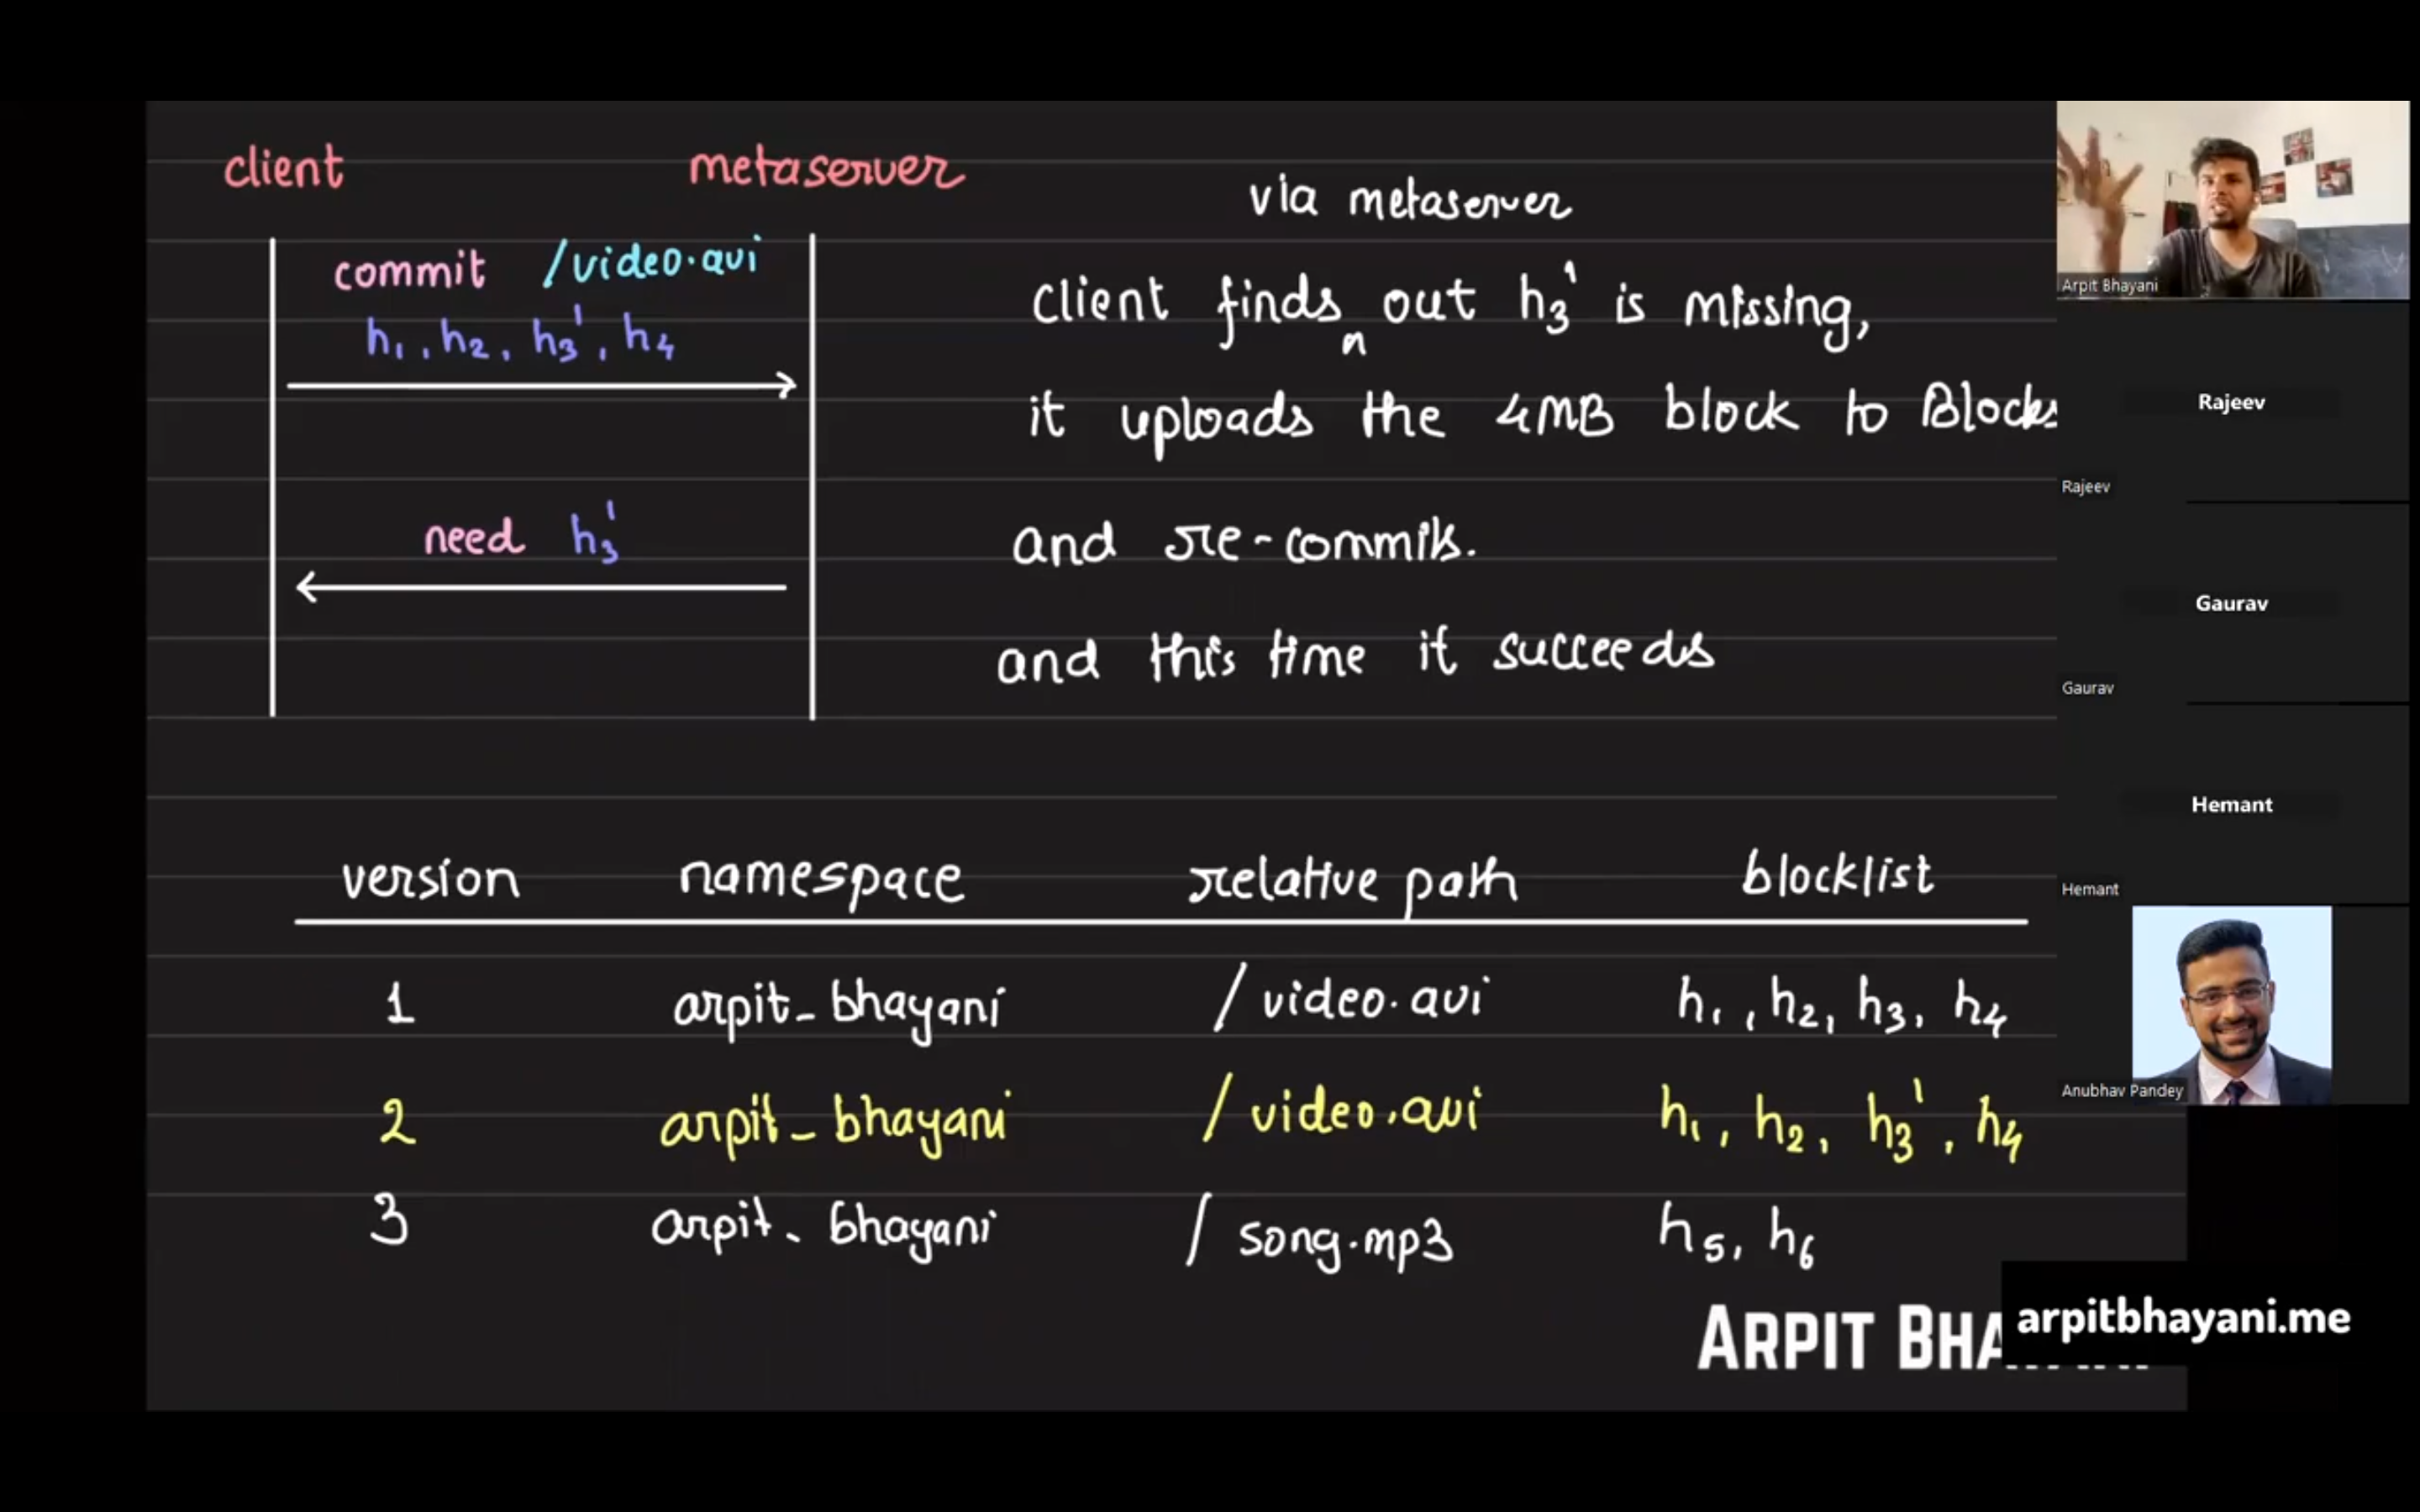 client metaserver
commit /video.avi
h1, h2, h3', h4
need h3'
via metaserver
client finds out h3' is missing,
it uploads the 4MB block to Blocks
and re-commits.
and this time it succeeds
version namespace relative path blocklist
1 arpit_bhayani /video.avi h1, h2, h3, h4
2 arpit_bhayani /video.avi h1, h2, h3', h4
3 arpit_bhayani /song.mp3 h5, h6
ARPIT BHA
arpitbhayani.me
Arpit Bhayani
Rajeev
Rajeev
Gaurav
Gaurav
Hemant
Hemant
Anubhav Pandey